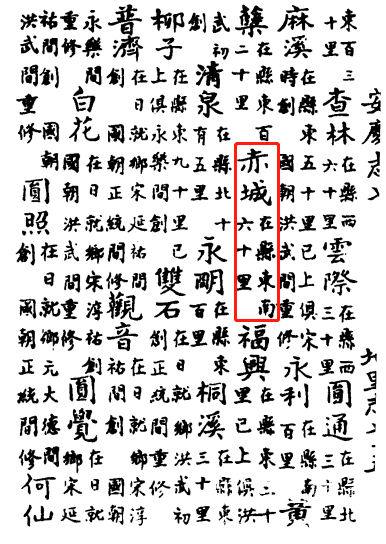 東百三十里查林在縣西六十里雲際在縣西三十里圓通在縣南三十里
麻溪在縣東五十里已上俱宋時創國朝洪武間重修永利在縣南百里黃
藥在縣東百二十里赤城在縣東南六十里福興在縣東三十里已上俱洪
武初創清泉在縣北十有五里永明在縣東百里桐溪在縣東三十里
柳子在縣東九十里已上俱永樂間創雙石在日就鄉洪武初創正統間重修
普濟在日就鄉宋延祐間創國朝正統間修觀音在日就鄉宋淳祐間創國朝
永樂間重修白花在日就鄉宋淳祐間創國朝洪武間重修圓覺在日就鄉宋延
祐間創國朝洪武間重修圓照在日就鄉元大德間創國朝正統間修何仙